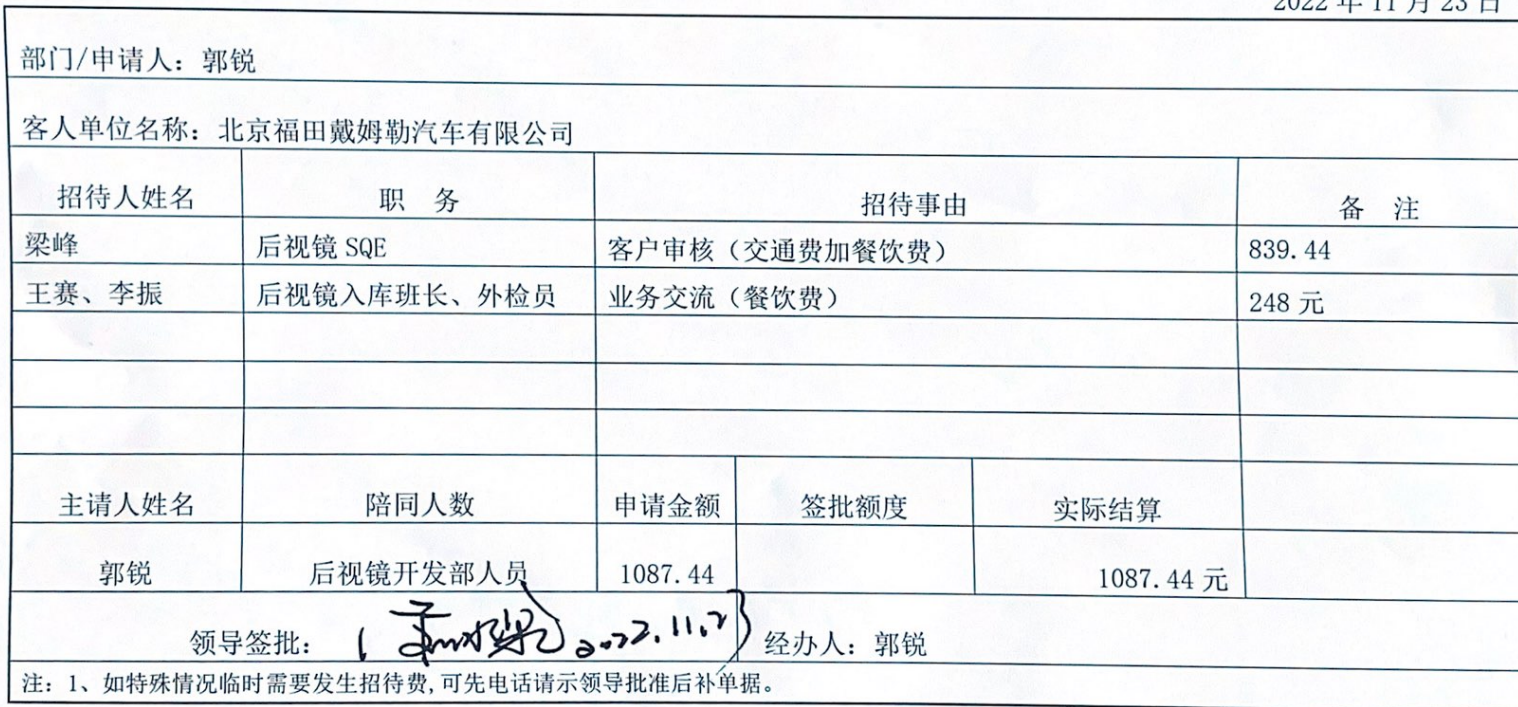 2022 年 11 月 23 日
部门/申请人：郭锐
客人单位名称：北京福田戴姆勒汽车有限公司
招待人姓名 职 务 招待事由 备 注
梁峰 后视镜 SQE 客户审核（交通费加餐饮费） 839.44
王赛、李振 后视镜入库班长、外检员 业务交流（餐饮费） 248 元
主请人姓名 陪同人数 申请金额 签批额度 实际结算
郭锐 后视镜开发部人员 1087.44 1087.44 元
领导签批： 2022.11.23 经办人：郭锐
注：1、如特殊情况临时需要发生招待费,可先电话请示领导批准后补单据。